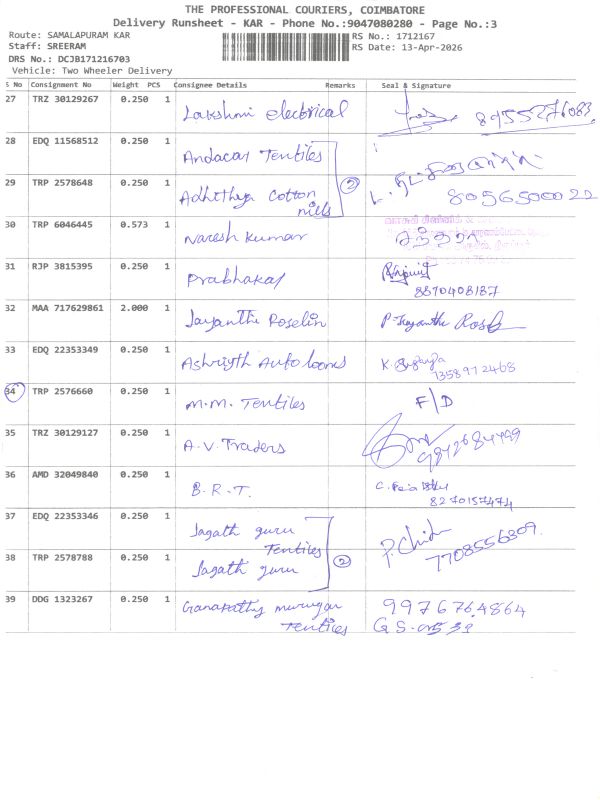 THE PROFESSIONAL COURIERS, COIMBATORE
Delivery Runsheet - KAR - Phone No.:9047080280 - Page No.:3
Route: SAMALAPURAM KAR
RS No.: 1712167
Staff: SREERAM
RS Date: 13-Apr-2026
DRS No.: DCJB171216703
Vehicle: Two Wheeler Delivery
S No Consignment No Weight PCS Consignee Details Remarks Seal & Signature
27 TRZ 30129267 0.250 1 Lakshmi electrical 8955276083
28 EDQ 11568512 0.250 1 Andacay Textiles
29 TRP 2578648 0.250 1 Adhithya Cotton mills 2 8056500022
30 TRP 6046445 0.573 1 Naresh Kumar
31 RJP 3815395 0.250 1 Prabhakar
8870408187
32 MAA 717629861 2.000 1 Jayanthi Roselin P. Jayanthi
33 EDQ 22353349 0.250 1 Ashvigth Auto looms K.
34 TRP 2576660 0.250 1 M.M. Textiles F/D
35 TRZ 30129127 0.250 1 A.V. Traders
36 AMD 32049840 0.250 1 B.R.T.
8270157474
37 EDQ 22353346 0.250 1 Jagath guru Textiles
7708556309
38 TRP 2578788 0.250 1 Jagath guru 2
39 DDG 1323267 0.250 1 Ganapathy murugan Textiles 9976764864